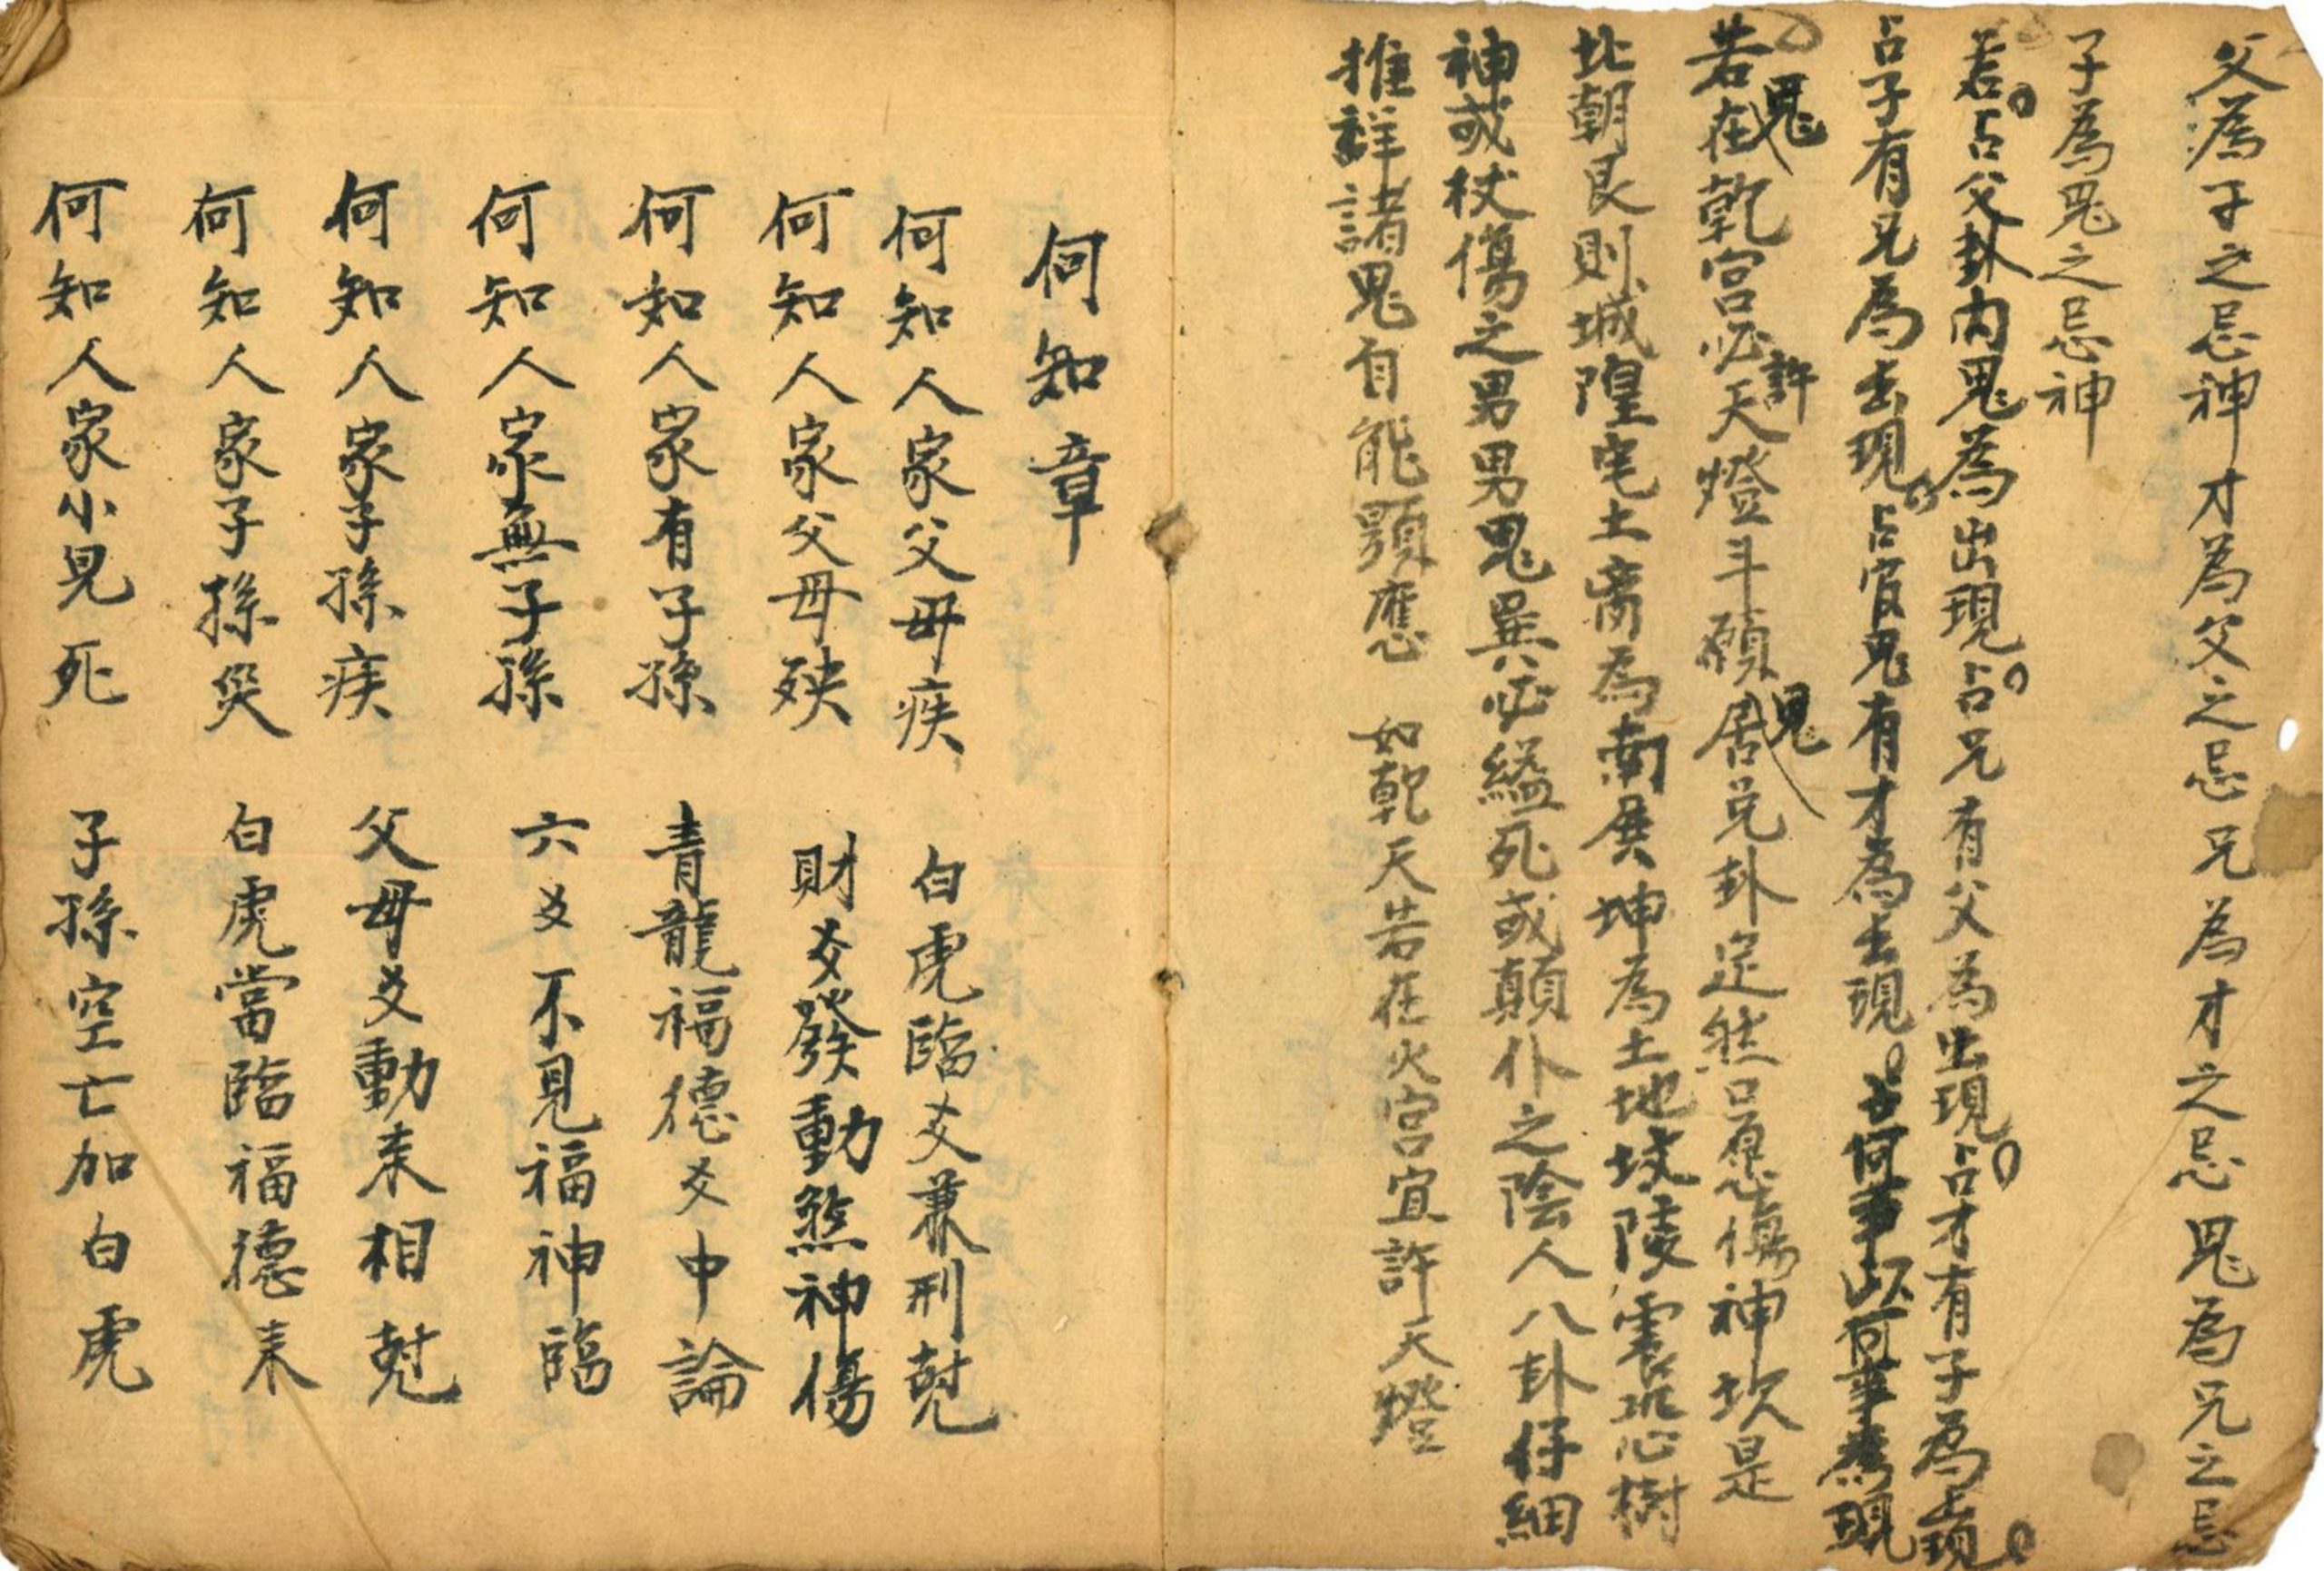 父為子之忌神才為父之忌兄為才之忌鬼為兄之忌
子為鬼之忌神
若占父卦內鬼為出現占兄有父為出現占才有子為出現
占子有兄為出現占官鬼有才為出現占何事以何事為現
若鬼在乾宮必許天燈斗願鬼居兌卦定然口愿傷神坎是
北朝艮則城隍宅土离為南展坤為土地坟陵震恐心樹
神或杖傷之男男鬼巽必縊死或顛仆之陰人八卦仔細
推詳諸鬼自能顯應 如乾天若在火宮宜許天燈
何知章
何知人家父母疾 白虎臨爻兼刑尅
何知人家父母殃 財爻發動煞神傷
何知人家有子孫 青龍福德爻中論
何知人家無子孫 六爻不見福神臨
何知人家子孫疾 父母爻動来相尅
何知人家子孫災 白虎當臨福德来
何知人家小兒死 子孫空亡加白虎